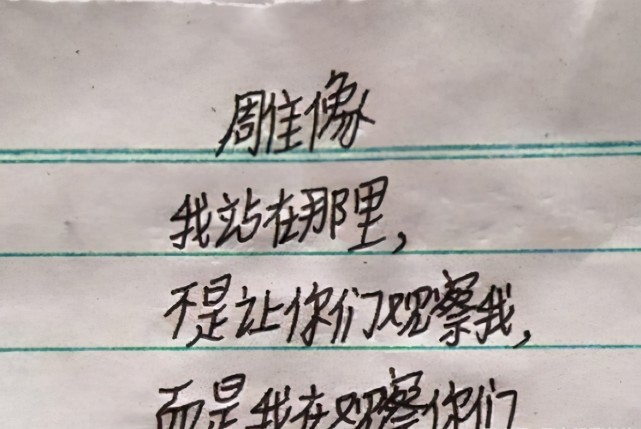 雕像
我站在那里，
不是让你们观察我，
而是我在观察你们